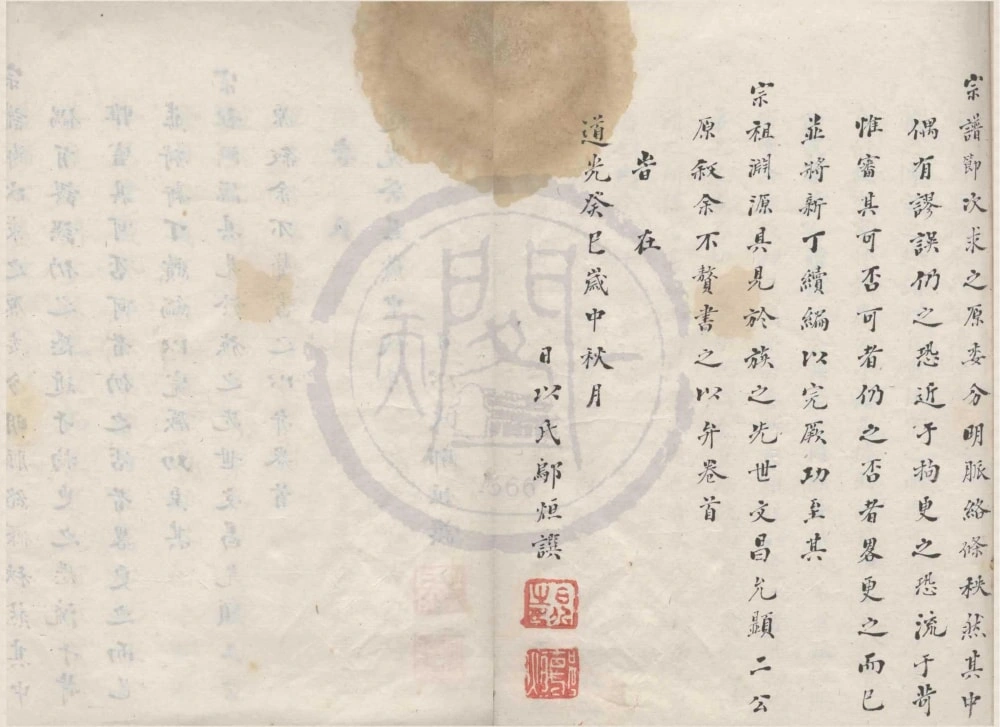 宗譜即次求之原委分明脈絡條秩然其中
偶有謬誤仍之恐近于拘更之恐流于苛
惟審其可否可者仍之否者畧更之而已
並將新丁續編以完厥功至其
宗祖淵源具見於族之先世文昌允顯二公
原叙余不贅書之以弁卷首
皆在
道光癸巳嵗中秋月
日以氏鄔烜譔
1866